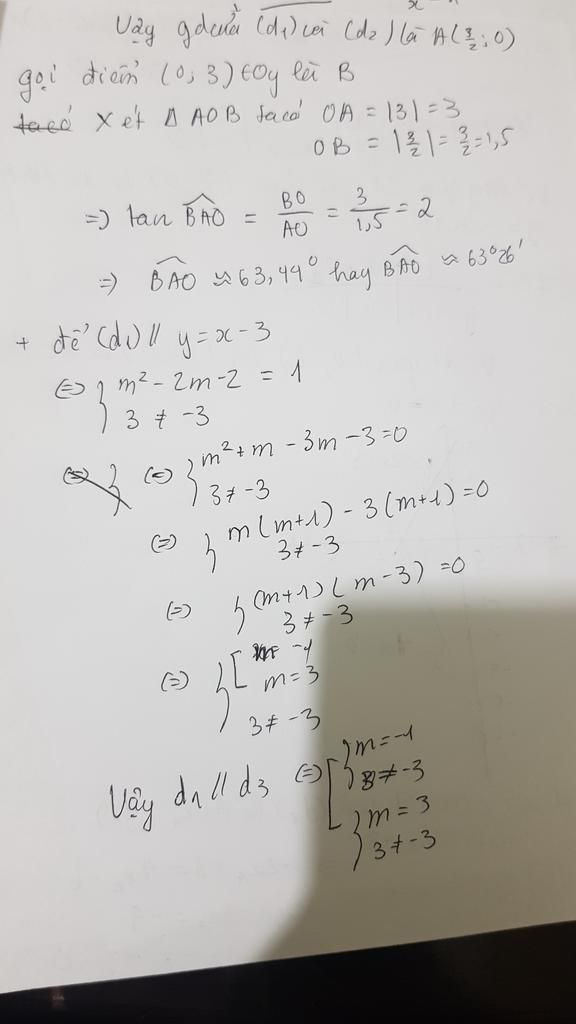 Vậy gđ của (d₁) với (d₂) là A(3/2; 0)
gọi điểm (0; 3) ∈ Oy là B
ta có Xét Δ AOB ta có OA = |3| = 3
OB = |3/2| = 3/2 = 1,5
=> tan BAO = BO/AO = 3/1,5 = 2
=> BAO ≈ 63,44° hay BAO ≈ 63°26'
+ để (d₁) // y = x - 3
<=> { m² - 2m - 2 = 1
3 ≠ -3
<=> { <=> { m² + m - 3m - 3 = 0
3 ≠ -3
<=> { m(m+1) - 3(m+1) = 0
3 ≠ -3
<=> { (m+1)(m-3) = 0
3 ≠ -3
<=> { [ m = -1
m = 3
3 ≠ -3
Vậy d₁ // d₃ <=> [ { m = -1
3 ≠ -3
{ m = 3
3 ≠ -3